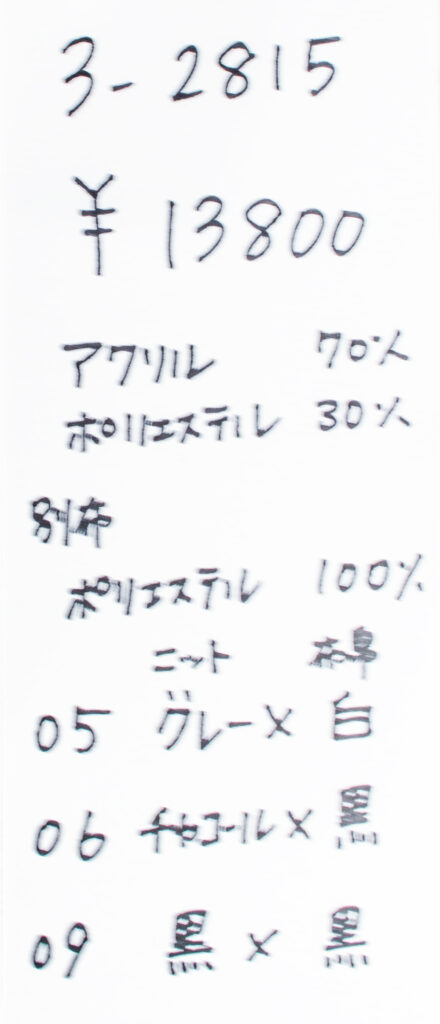 3-2815
¥13800
アクリル 70%
ポリエステル 30%
別布
ポリエステル 100%
ニット 布帛
05 グレー×白
06 チャコール×黒
09 黒×黒